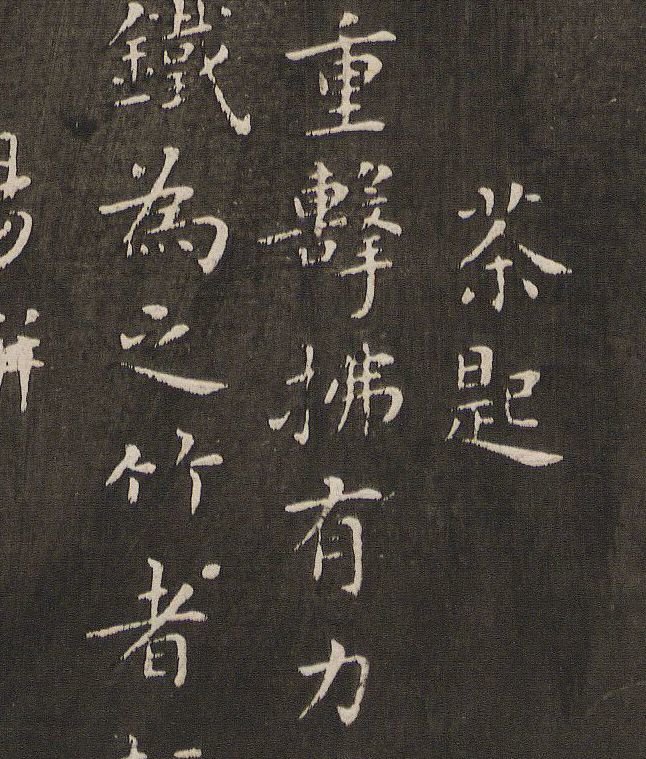 茶匙
重擊拂有力
鐵為之竹者